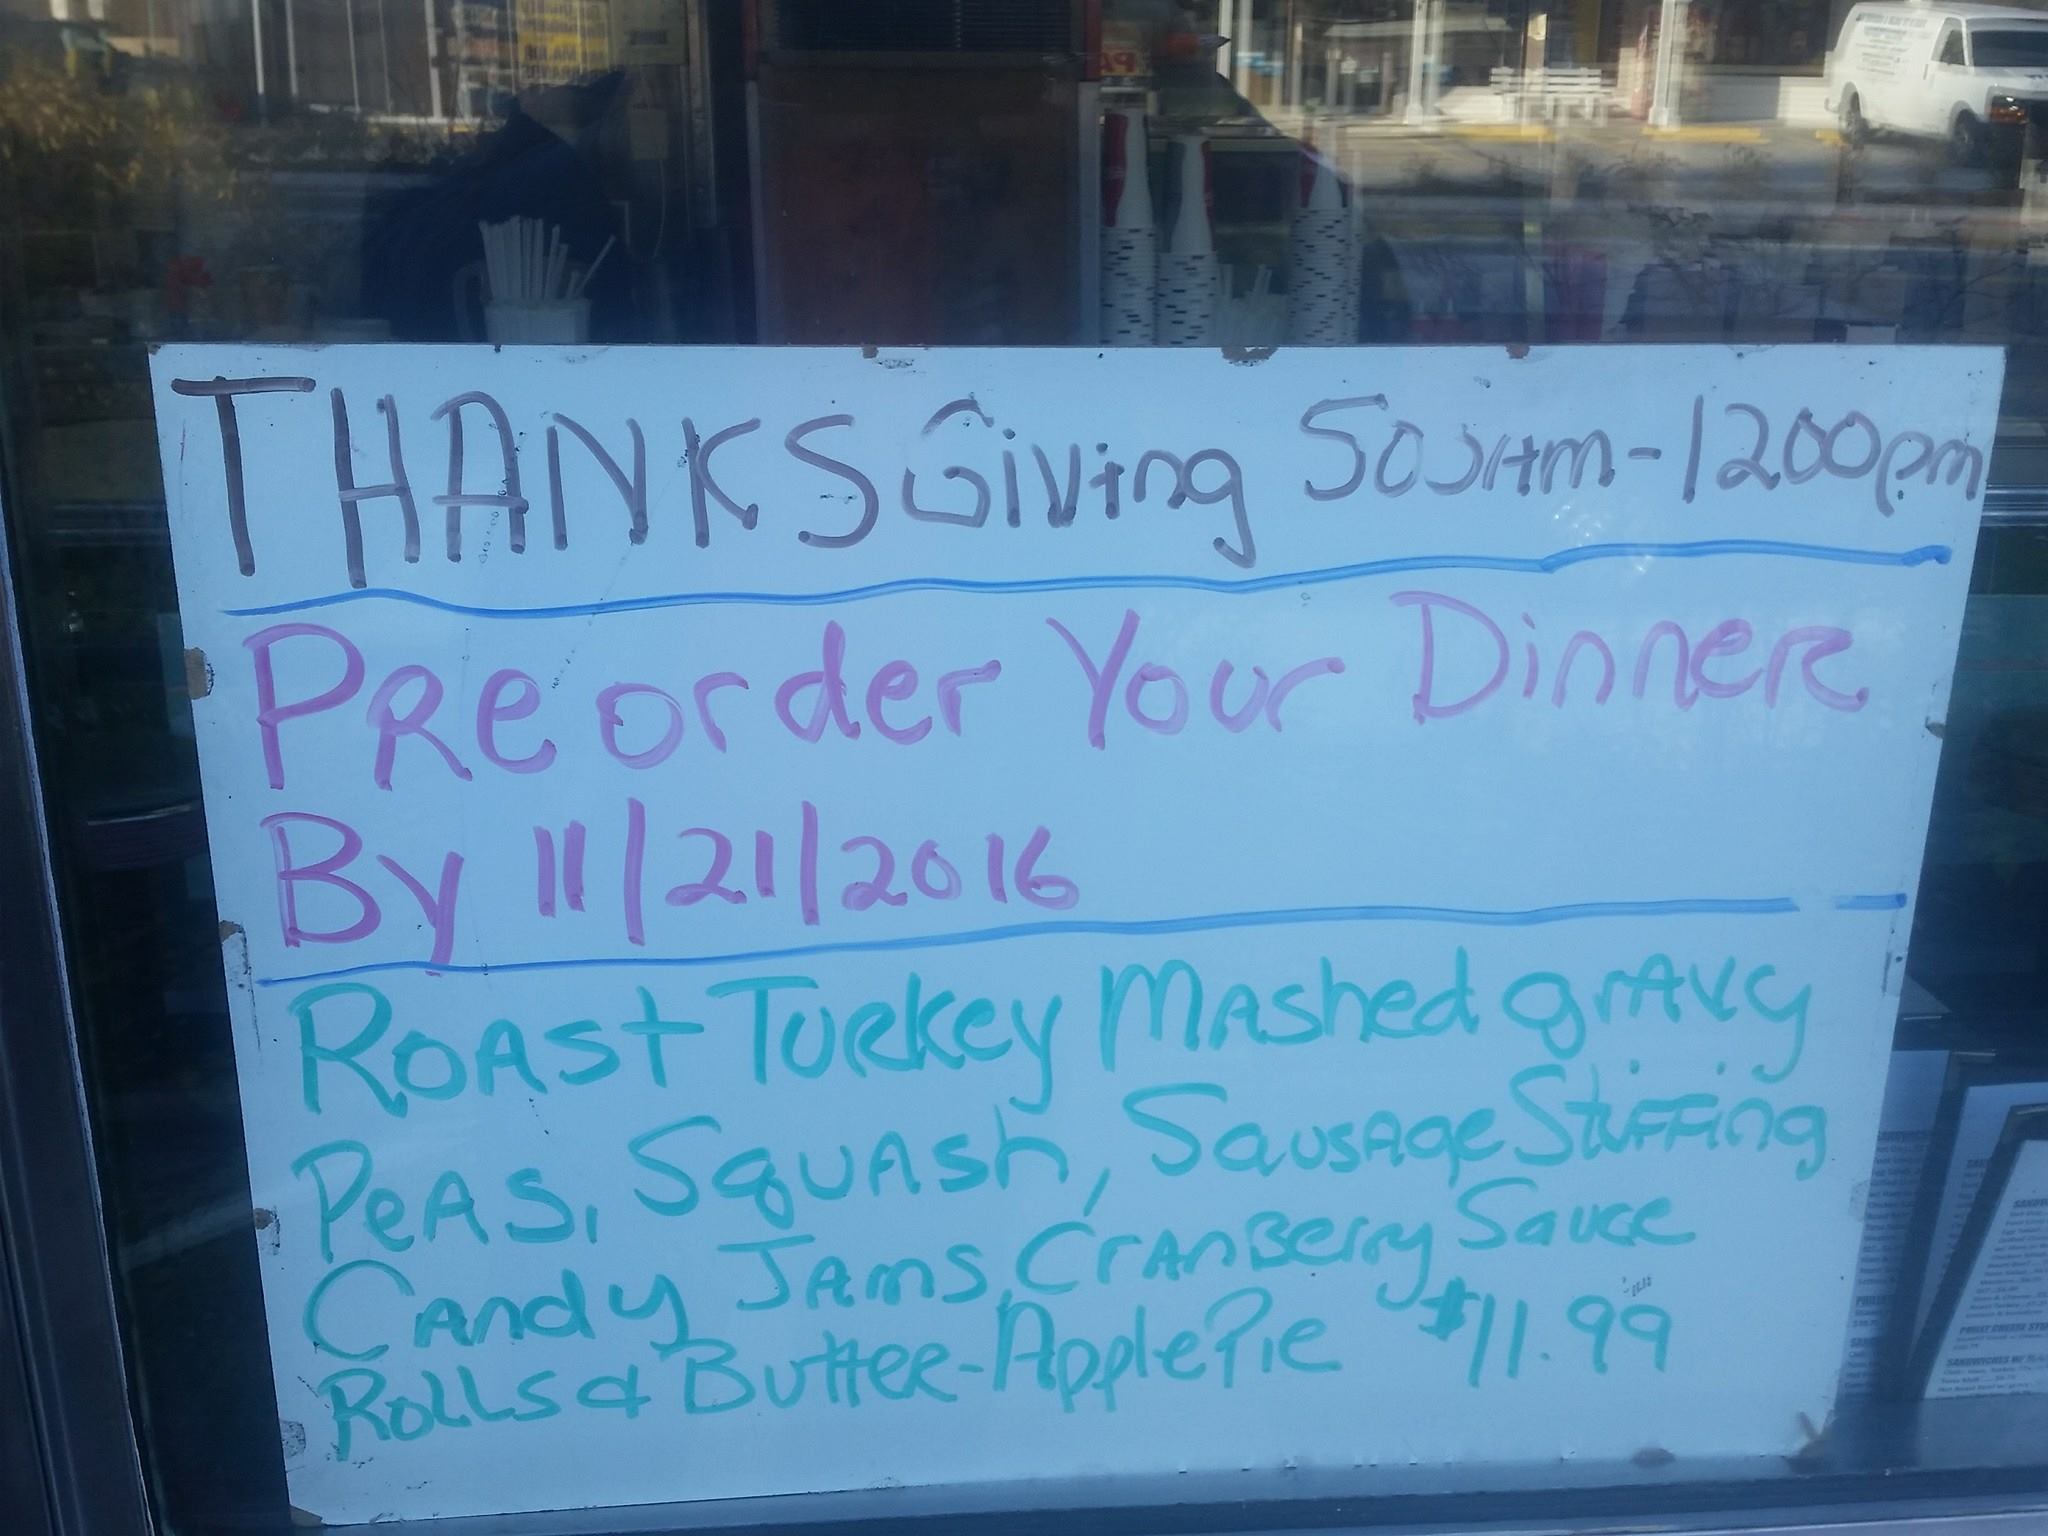 THANKSGiving 500Am-1200pm
PReorder Your DinneR
By 11/21/2016
ROAST TURKey MAshed grAvy
PeAs, SquAsh, SausAge StuFFing
CAndy JAms, CrAnBerry Sauce
ROLLS & ButteR-ApplePie $11.99